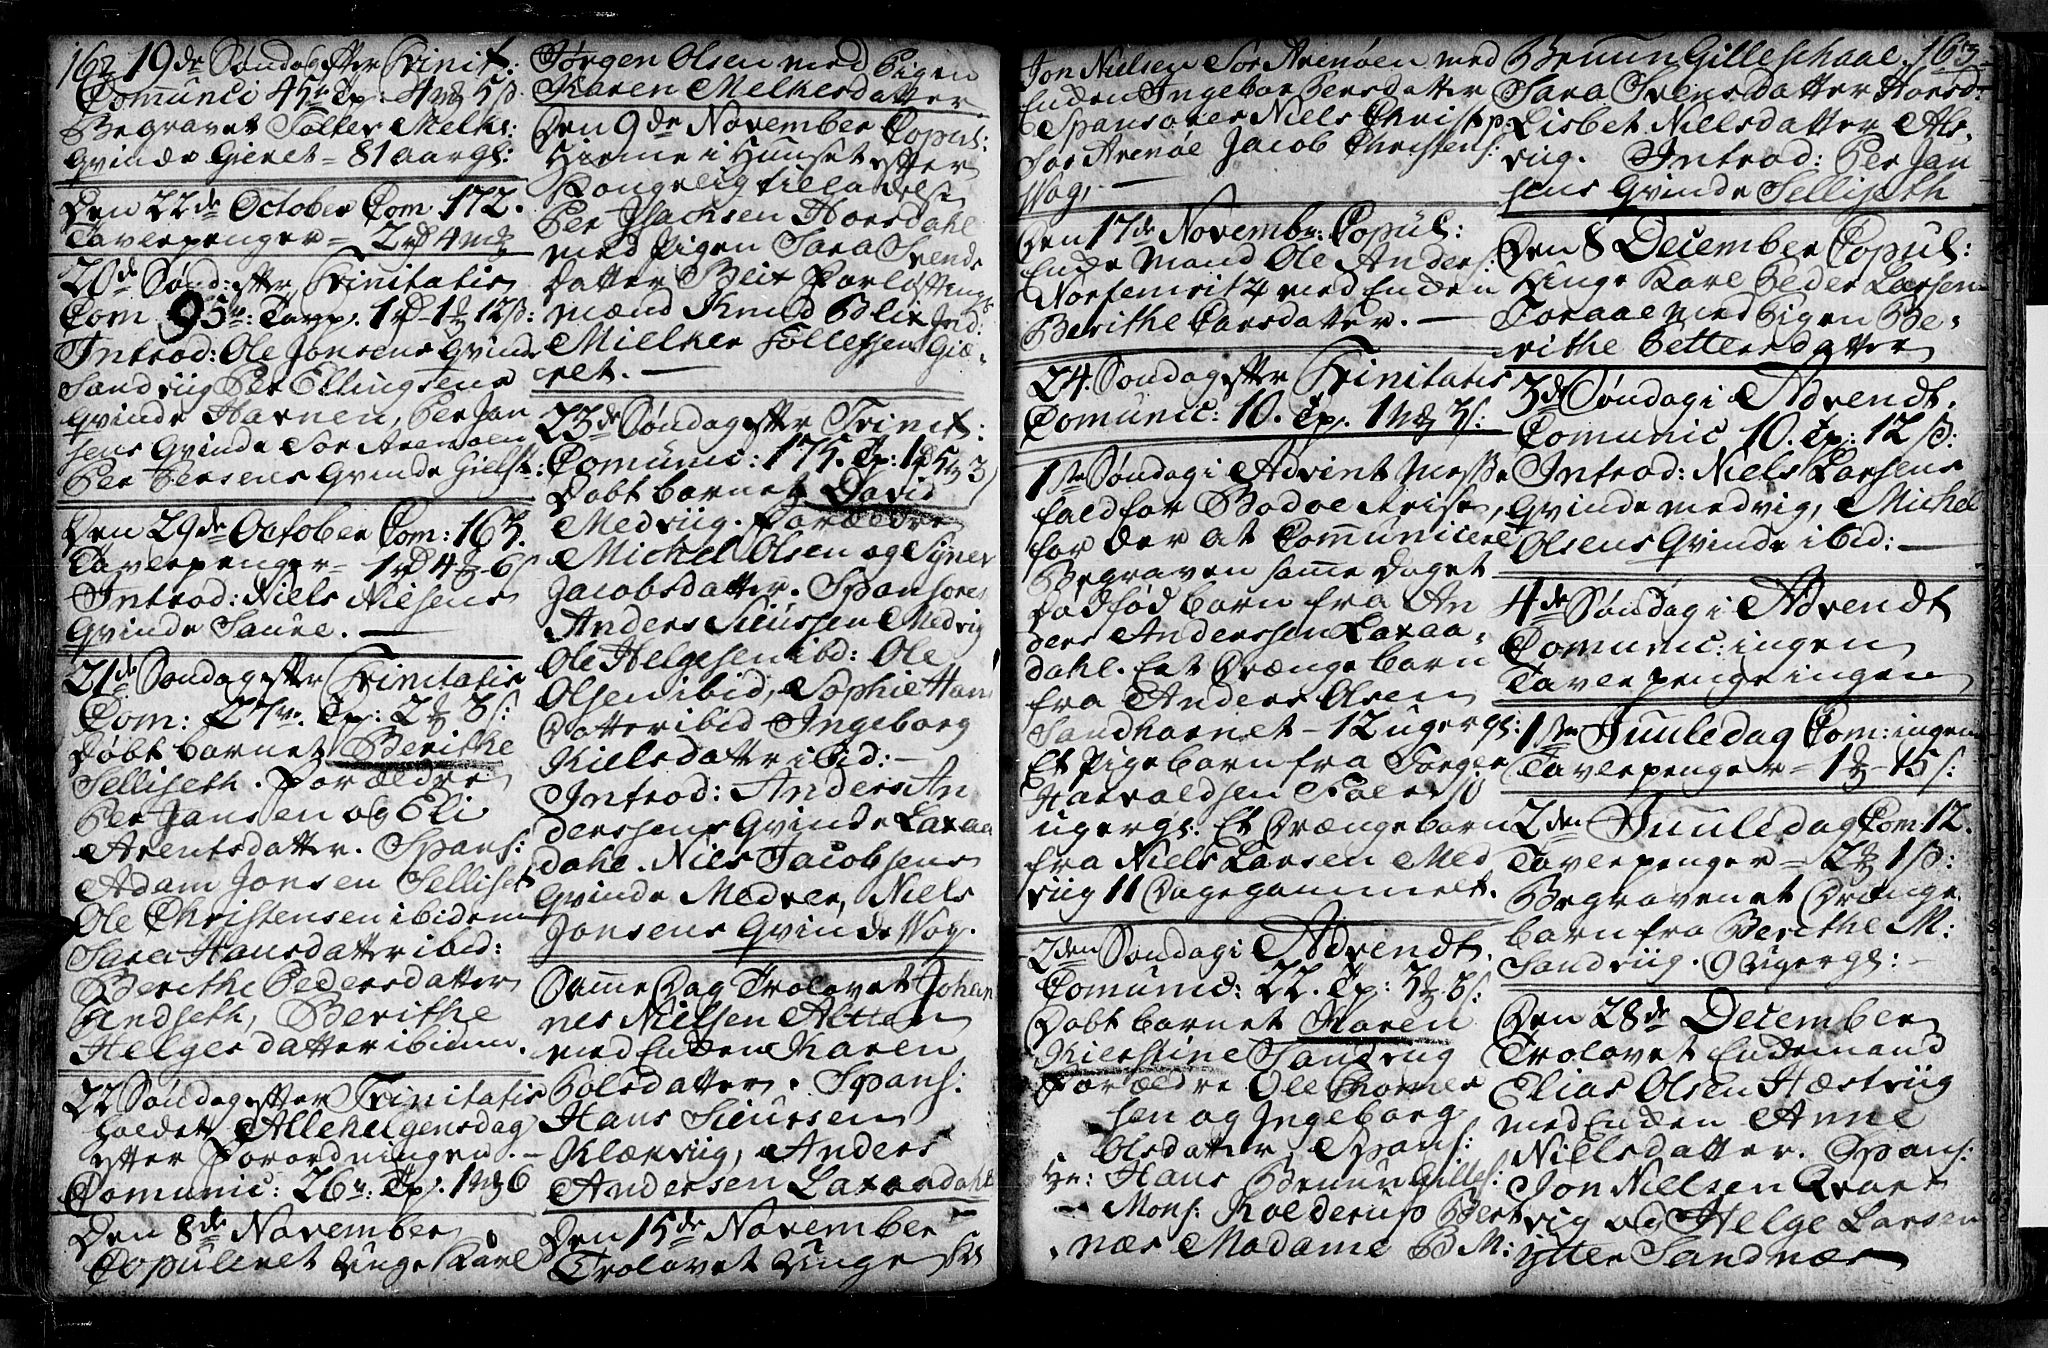 162 19de Søndag efter Trinit:
Comunic 45r Tp: 4 5 ß
Begravet Folker Melks:
Qvinde Gieret = 81 aar gl:
Den 22de October Com. 172.
Taverpenger = 2 rd 4 mk
20de Sønd: efter Trinitatis
Com 95r: Tavp. 1 rd - 1 mk 12 ß:
Introd: Ole Jonsens Qvinde
Sandviig Per Ellingsens
Qvinde Harnen, Per Jan
sens Qvinde Sør Arenøen
Per Persens Qvinde Gielst:
Den 29de October Com: 163.
Taverpenger = 1 rd 4 mk - 6 ß
Introd: Niels Nielsens
Qvinde Saure.
21de Søndag efter Trinitatis
Com: 27r. Tp: 2 mk 8 ß:
Døbt barnet Berithe
Selliseth. Forældre
Per Jansen og Eli
Arentsdatter. Spans:
Adam Jonsen Selliset
Ole Christensen ibidem
Sara Hansdatter ibid:
Berithe Pedersdatter
Indseth, Berithe
Helgesdatter ibidem.
22 Søndag efter Trinitatis
holdet Allehelgensdag
efter Forordningen. -
Comunic: 26r: Tp. 1 mk 6
Den 8de November
Copuleret unge Karl
Jørgen Olsen med Pigen
Karen Melkesdatter
Den 9de November Copul:
Hieme i Huuset efter
Kongelig tilladelse
Per Isachsen Horsdahl
med Pigen Sara Svends
datter Beix Forløftnings
mænd Knud Blix Ind:
Mielker Follefsen Giæ-
ret.
23de Søndag efter Trinit:
Comunic: 175. Tp: 1 rd 5 mk 3 ß
Døbt barnet David
Medviig. Forældre
Michel Olsen og Synev
Jacobsdatter. Spansores
Anders Siurssen Medvig
Ole Helgesen ibd: Ole
Olsen ibid, Sophie Hans
Datter ibid Ingeborg
Kielsdatter ibid:
Introd: Anders An
dersens Qvinde Laxaa
dahl. Niels Jacobsens
Qvinde Medvee, Niels
Jonsens Qvinde Vog.
Samme Dag Trolovet Johan
nes Nielsen Alttan
med Enden Karen
Polsdatter. Spans:
Hans Siurssen
Klæxviig, Anders
Andersen Laxaadahl
Den 15de November
Trolovet Unge Karl
Jon Nielsen Sør Arenøen med
Enden Ingebor Persdatter
Spansores Niels Christp
Sør Arenøe Jacob Christens:
Vog,
Den 17de Novembr: Copul:
Ende Mand Ole Anders:
Norfenvik med Enden
Berithe Larsdatter.
24. Søndag efter Trinitatis
Comunic: 10. Tp. 1 mk 3 ß.
1ste Søndag i Advent Messe
fald for Bodøe Reise,
for der at Communicere
Begraven samme Daget
Dødfød barn fra An
ders Anderssen Laxaa-
dahl. Eet Drænge barn
fra Anders Olsen
Sandhornet - 12 uger gl:
Et Pigebarn fra Torger
Harvaldsen
uger gl: Et Drængebarn
fra Niels Larsen Med
viig 11 Dage gammelt.
2den Søndag i Advendt.
Comunic: 22. Tp: 3 mk 8 ß:
Døbt barnet Karen
Kierstine Sandvig
Forældre Ole Thomes
sen og Ingeborg
Olsdatter, Spans:
Hr: Hans Bruun Gilles:
Mons: Kolderup Bert
næs Madame B M:
Bruun Gilleschaal. 163
Sara Svensdatter Horsd:
Lisbet Nielsdatter Als-
viig. Introd: Per Jan
sens Qvinde Sellisseth
Den 8 December Copul:
Unge Karl Peder Larsen
Foraae med Pigen Be-
rithe Pettersdatter
3de Søndag i Advendt.
Comunic 10. Tp: 12 ß:
Introd: Niels Larsens
Qvinde medvig, Michel
Olsens Qvinde ibid:
4de Søndag i Advendt
Comunic: ingen
Taverpenge ingen
1ste Juuledag Com: ingen
Taverpenger = 1 mk - 15 ß:
2den Juuledag Com 12.
Taverpenger = 2 mk 1 ß:
Begraven et Drænge
barn fra Berithe M:
Sandviig. 9 uger gl:
Den 28de December
Trolovet Endemand
Elias Olsen Hæstviig
med Enden Anne
Nielsdatter. Spans:
Jon Nielsen Qvar
vig og Helge Larsen
Ytter Sandnæs